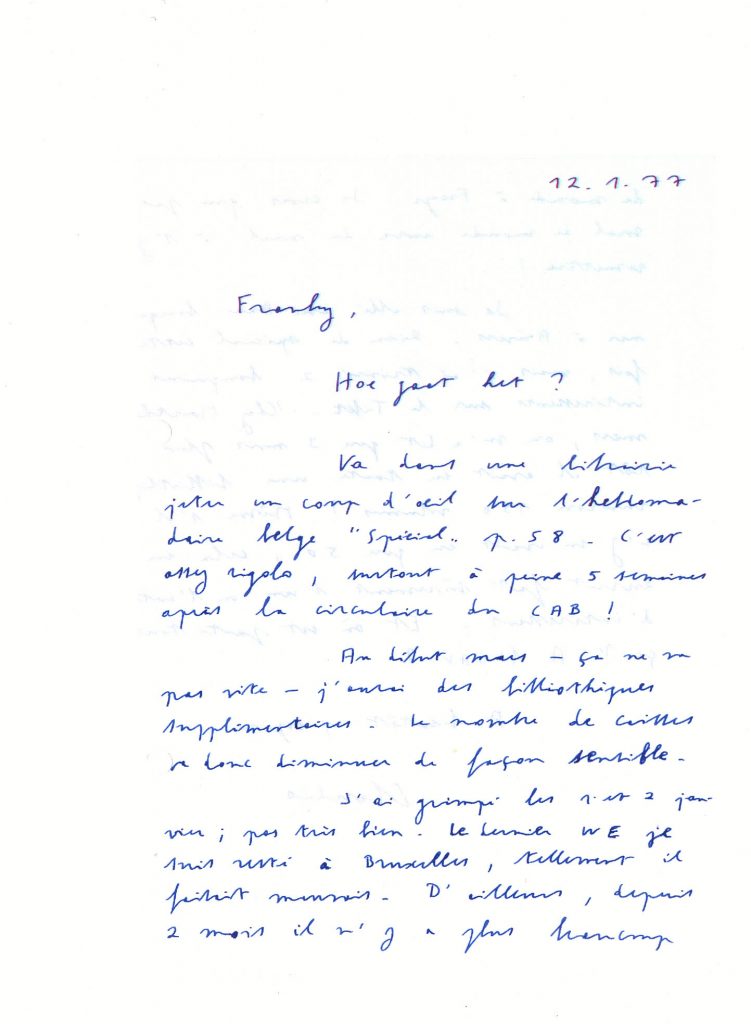 12.1.77
Franky,
Hoe gaat het ?
Va dans une librairie
jeter un coup d'oeil sur l'hebdoma-
daire belge "Spécial" p. 58 - C'est
assez rigolo, surtout à peine 5 semaines
après la circulaire du CAB !
Au début mars - ça ne va
pas vite - j'aurai des bibliothèques
supplémentaires. Le nombre de caisses
va donc diminuer de façon sensible.
J'ai grimpé les 1 et 2 jan-
vier ; pas très bien. Le dernier WE je
suis resté à Bruxelles, tellement il
faisait mauvais. D'ailleurs, depuis
2 mois il n'y a plus beaucoup